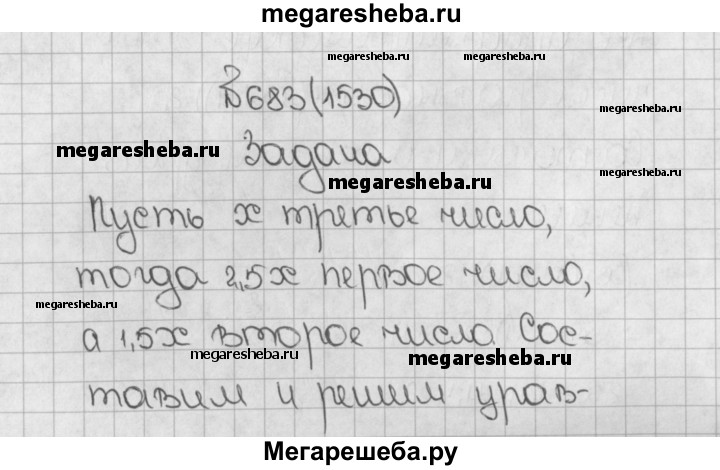 megaresheba.ru
megaresheba.ru megaresheba.ru
№683(1530)
megaresheba.ru
Задача
megaresheba.ru
Пусть x третье число,
тогда 2,5x первое число,
megaresheba.ru
а 1,5x второе число. Сос-
megaresheba.ru megaresheba.ru
тавим и решим урав-
Мегарешеба.ру